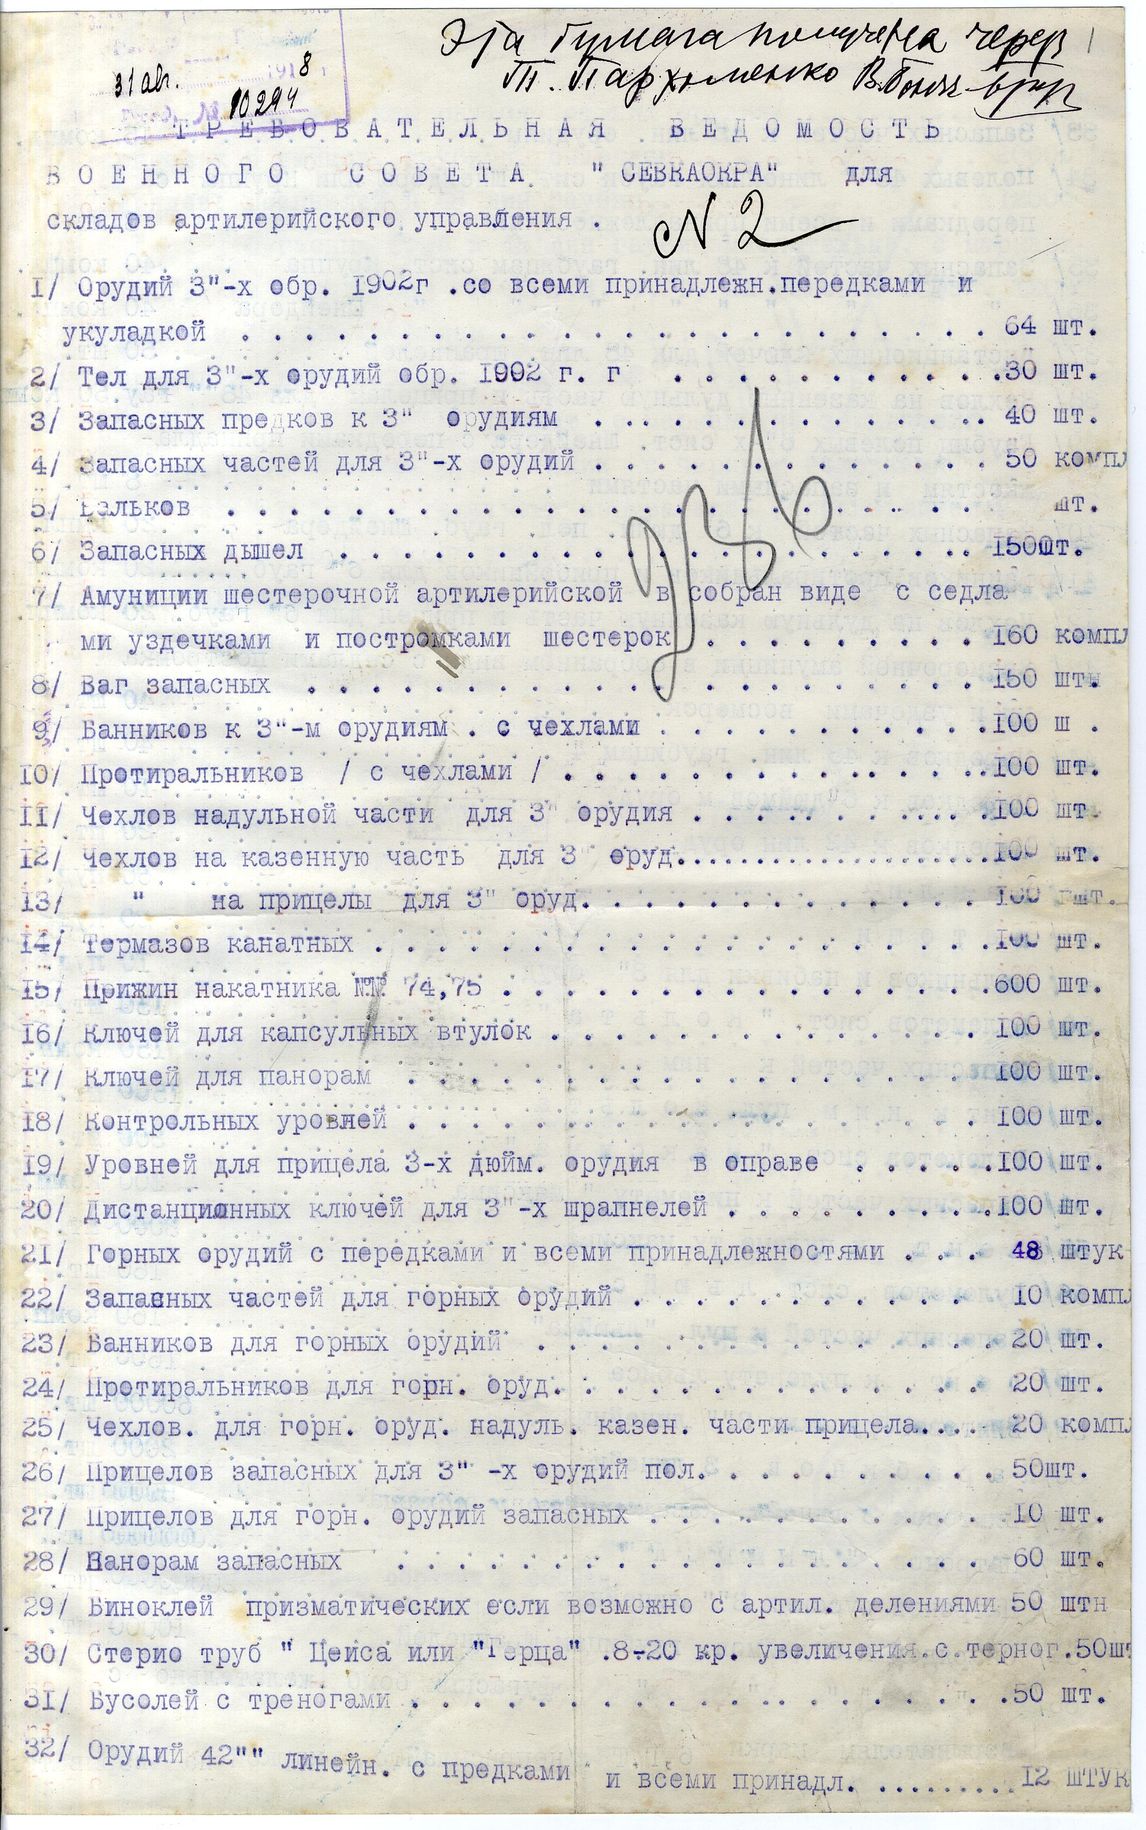 Эта бумага получена через
Т. Пархоменко В. Бонч-Бру
31 авг. 1918 г
№ 10294
ТРЕБОВАТЕЛЬНАЯ ВЕДОМОСТЬ
ВОЕННОГО СОВЕТА "СЕВКАОКРА" для
складов артилерийского управления .
N 2
1/ Орудий 3"-х обр. 1902г .со всеми принадлежн.передками и
укуладкой . . . . . . . . . . 64 шт.
2/ Тел для 3"-х орудий обр. 1902 г. г . . . . . . . . .30 шт.
3/ Запасных предков к 3" орудиям . . . . . . . . . . 40 шт.
4/ Запасных частей для 3"-х орудий . . . . . . . . . . 50 компл
5/ Вальков . . . . . . . . . . шт.
6/ Запасных дышел . . . . . . . . . . 150шт.
7/ Амуниции шестерочной артилерийской в собран виде с седла
ми уздечками и постромками шестерок . . . . . . . . 160 компл
8/ Ваг запасных . . . . . . . . . . 150 шт.
9/ Банников к 3"-м орудиям . с чехлами . . . . . . . . .100 ш .
10/ Протиральников / с чехлами / . . . . . . . . . .100 шт.
11/ Чехлов надульной части для 3" орудия . . . . . . . . .100 шт
12/ Чехлов на казенную часть для 3" оруд....................100 шт.
13/ " на прицелы для 3" оруд. . . . . . . . . . 100 шт.
14/ Термазов канатных . . . . . . . . . .100 шт.
15/ Прижин накатника №№ 74,75 . . . . . . . . . .600 шт.
16/ Ключей для капсульных втулок . . . . . . . . . .100 шт.
17/ Ключей для панорам . . . . . . . . . .100 шт.
18/ Контрольных уровней . . . . . . . . . . 100 шт.
19/ Уровней для прицела 3-х дюйм. орудия в оправе . . . . .100 шт.
20/ Дистанционных ключей для 3"-х шрапнелей . . . . . . . . .100 шт.
21/ Горных орудий с передками и всеми принадлежностями . . . 48 штук
22/ Запасных частей для горных орудий . . . . . . . . . 10 компл
23/ Банников для горных орудий . . . . . . . . . . 20 шт.
24/ Протиральников для горн. оруд. . . . . . . . . . 20 шт.
25/ Чехлов. для горн. оруд. надуль. казен. части прицела.... 20 компл
26/ Прицелов запасных для 3" -х орудий пол. . . . . . . . . 50шт.
27/ Прицелов для горн. орудий запасных . . . . . . . . . .10 шт.
28/ Панорам запасных . . . . . . . . . . 60 шт.
29/ Биноклей призматических если возможно с артил. делениями 50 штн
30/ Стерио труб " Цейса или "Герца" .8-20 кр. увеличения.с.терног.50шт
31/ Бусолей с треногами . . . . . . . . . .50 шт.
32/ Орудий 42"" линейн. с предками и всеми принадл. ..........12 ШТУК